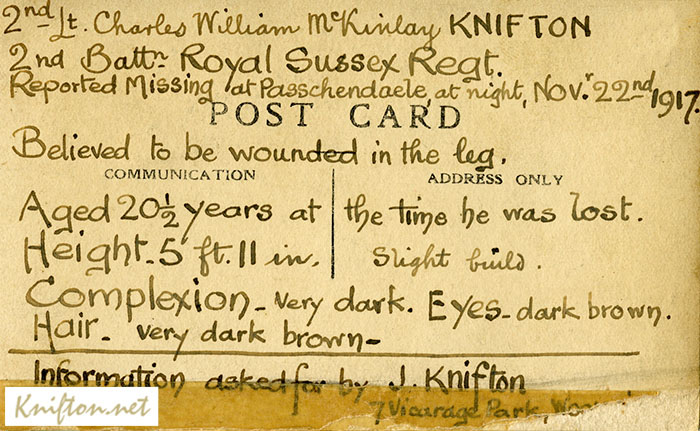 2nd Lt. Charles William McKinlay KNIFTON
2nd Battn Royal Sussex Regt.
Reported Missing at Passchendaele, at night, Nov.r 22nd 1917.
POST CARD
Believed to be wounded in the leg.
COMMUNICATION
ADDRESS ONLY
Aged 20½ years at the time he was lost.
Height - 5 ft. 11 in. Slight build.
Complexion - very dark. Eyes - dark brown.
Hair - very dark brown -
Information asked for by J. Knifton
7 Vicarage Park,
Knifton.net